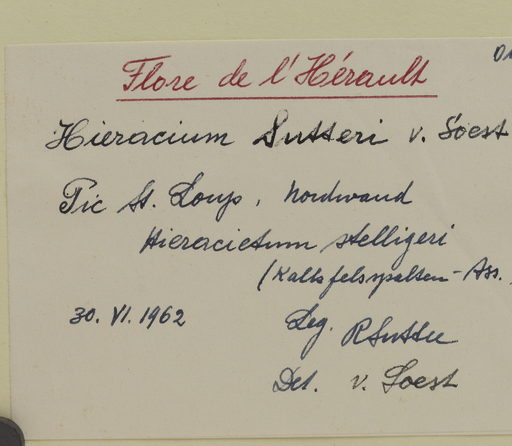 Flore de l'Hérault
Hieracium Sutteri v. Soest
Pic St. Loup, Nordwand
Hieracietum stelligeri
(Kalkfelsspalten-Ass.
30. VI. 1962
Leg. R Sutter
Det. v. Soest